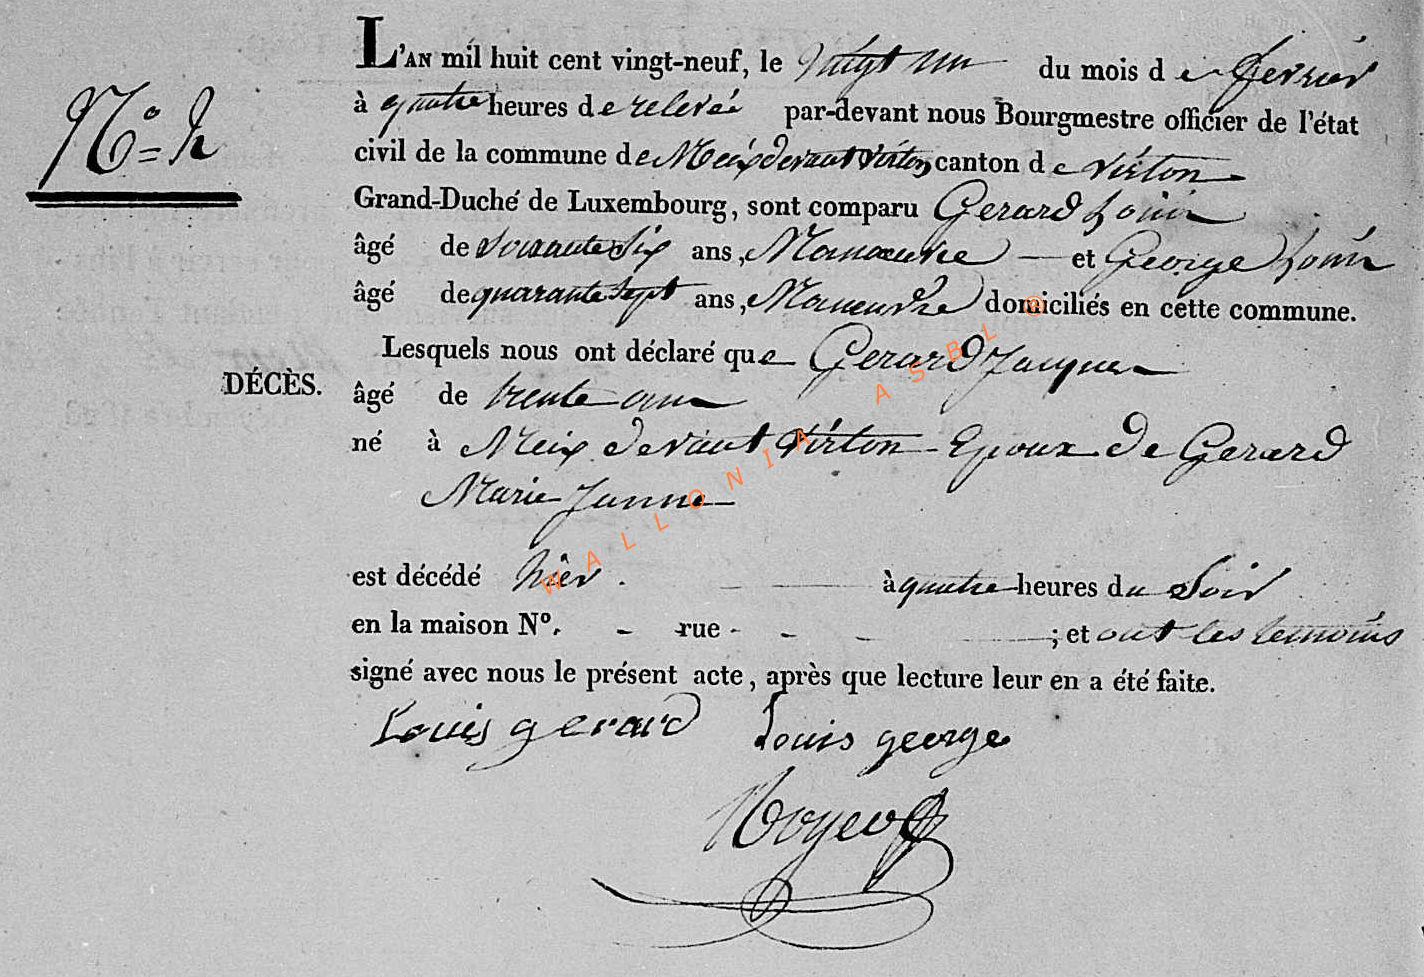 L'AN mil huit cent vingt-neuf, le vingt un du mois de fevrier
N° 4
à quatre heures de relevée par-devant nous Bourgmestre officier de l'état
civil de la commune de Meix devant virton, canton de virton
Grand-Duché de Luxembourg, sont comparu Gerard Louis
âgé de soixante Six ans, Manoeuvre et George Louis
âgé de quarante Sept ans, Manoeuvre domiciliés en cette commune.
Lesquels nous ont déclaré que Gerard Jacques
DÉCÈS.
âgé de trente ans
né à Meix devant virton Epoux de Gerard
Marie Janne
est décédé hier. à quatre heures du Soir
en la maison N°. - rue - - - ; et ont les temoins
signé avec nous le présent acte, après que lecture leur en a été faite.
Louis gerard Louis george
WALLONIA ASBL ©